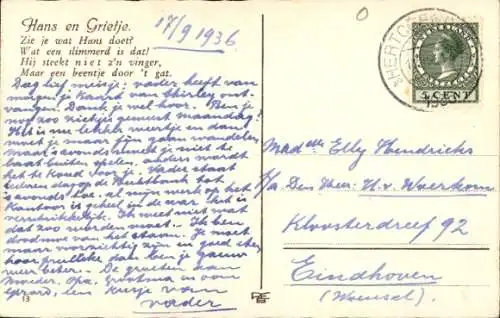 Hans en Grietje.
Zie je wat Hans doet?
Wat een slimmerd is dat!
Hij steekt niet z'n vinger,
Maar een beentje door 't gat.
17/9 1936
Dag lief meisje: vader heeft van
morgen je kaart van Shirley ont-
vangen. Dank je wel hoor. Ben je
nog zoo ziekjes geweest maandag?
Het is nu lekker weertje en dan
moet je maar fijn gaan wandelen
maar 's avonds moet je niet te
laat buiten spelen, anders wordt
het te koud voor je. Vader staat
iederen dag op de
's avonds toe. al mijn werk op het
Kantoor is geheel in de war. het is
verschrikkelijk. Ik weet niet wat
dat zoo worden moet. Ik ben
doodmoe van het staan. Je moet
maar voorzichtig zijn en goed eten
hoor dan ben je gauw
weer beter. De groeten aan
Moeder, Opa, Grootma en oom
Gerard, een kusje van
vader
13
'S HERTOGENB
5 CENT
Mad elle Elly Hendricks
p/a Den Heer H. v. Woerkom
Kloosterdreef 92
Eindhoven
(Woensel)